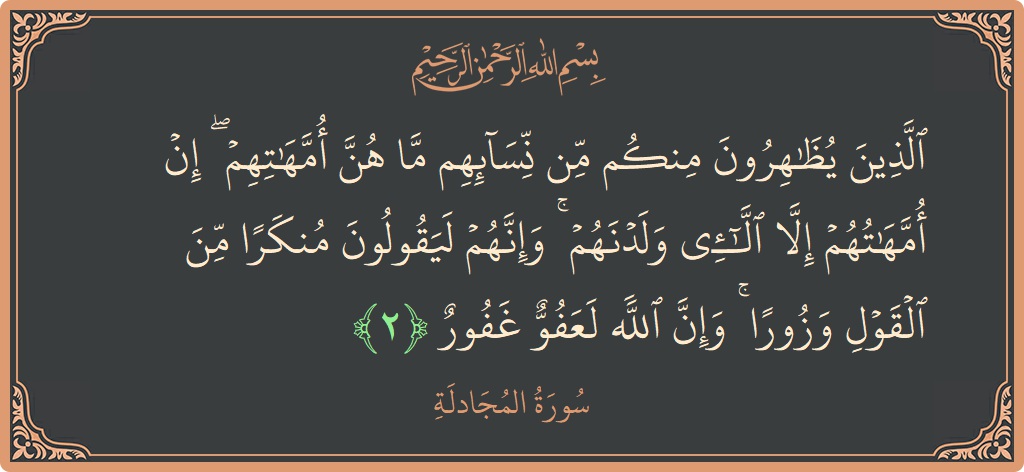 بِسْمِ اللهِ الرَّحْمٰنِ الرَّحِيْمِ
ٱلَّذِينَ يُظَـٰهِرُونَ مِنكُم مِّن نِّسَآئِهِم مَّا هُنَّ أُمَّهَـٰتِهِمْ ۖ إِنْ
أُمَّهَـٰتُهُمْ إِلَّا ٱلَّـٰٓـِٔى وَلَدْنَهُمْ ۚ وَإِنَّهُمْ لَيَقُولُونَ مُنكَرًا مِّنَ
ٱلْقَوْلِ وَزُورًا ۚ وَإِنَّ ٱللَّه لَعَفُوٌّ غَفُورٌ ﴿٢﴾
سُورَةُ المُجَادلَةِ